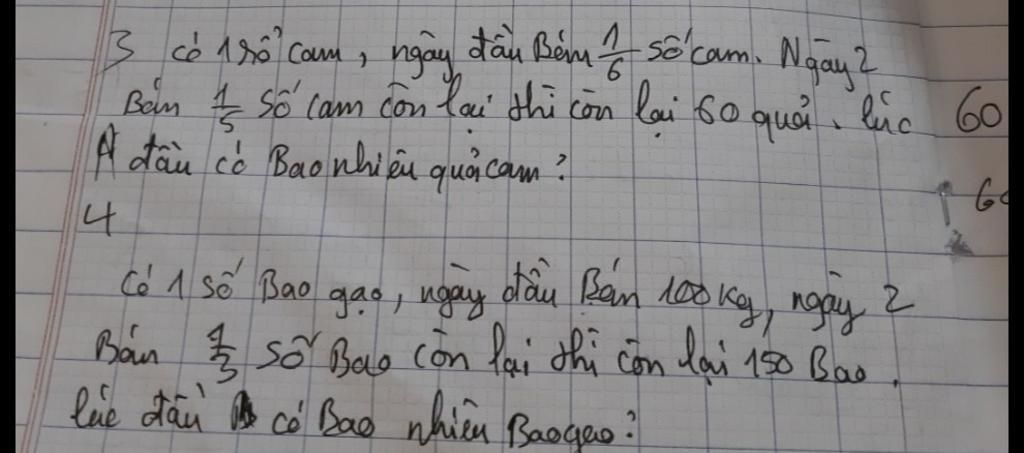 3 có 1 số cam, ngày đầu Bán 1/6 số cam. Ngày 2
Bán 1/5 số cam còn lại thì còn lại 60 quả. lúc
đầu có Bao nhiêu quả cam?
60
4
Có 1 số Bao gạo, ngày đầu Bán 100 kg, ngày 2
Bán 1/3 số Bao còn lại thì còn lại 150 Bao.
lúc đầu có Bao nhiêu Bao gạo?